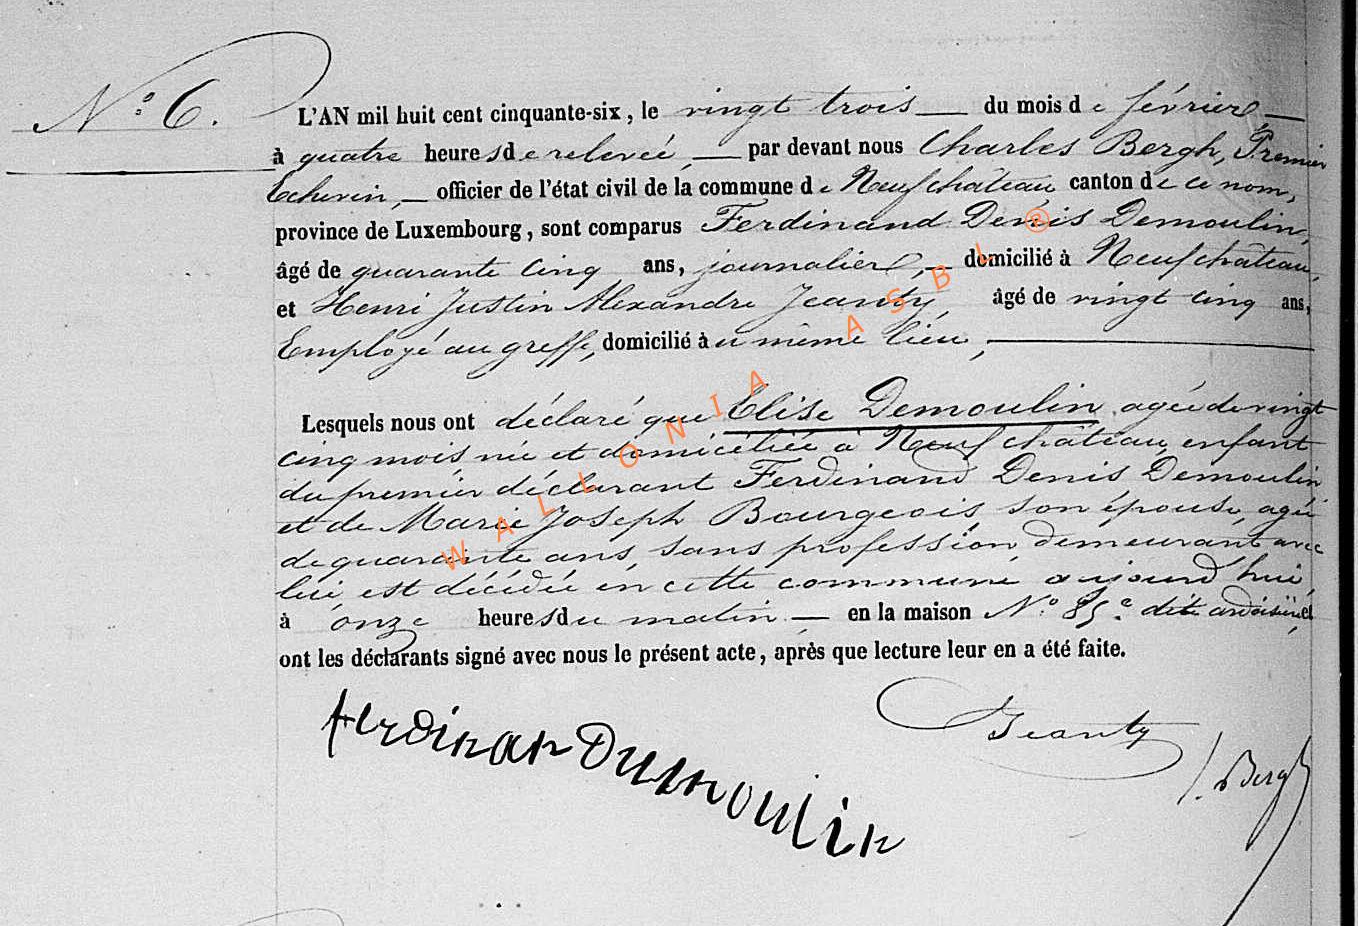 N.° 6.
L'AN mil huit cent cinquante-six, le vingt trois du mois de février
à quatre heures de relevée, par devant nous Charles Bergh, Premier
Echevin, officier de l'état civil de la commune de Neufchâteau canton de ce nom,
province de Luxembourg, sont comparus Ferdinand Denis Demoulin,
âgé de quarante cinq ans, journalier, domicilié à Neufchâteau,
et Henri Justin Alexandre Jeanty âgé de vingt cinq ans,
Employé au greffe, domicilié au même lieu,
Lesquels nous ont déclaré que Elise Demoulin agée de vingt
cinq mois née et domiciliée à Neufchâteau, enfant
du premier déclarant Ferdinand Denis Demoulin
et de Marie Joseph Bourgeois son épouse, agée
de quarante ans, sans profession demeurant avec
lui est décédée en cette commune aujourd'hui
à onze heures du matin en la maison N.° 85.e dite et
ont les déclarants signé avec nous le présent acte, après que lecture leur en a été faite.
Jeanty
Ferdinan Dumoulin
Bergh
WALLONIA ASBL ®